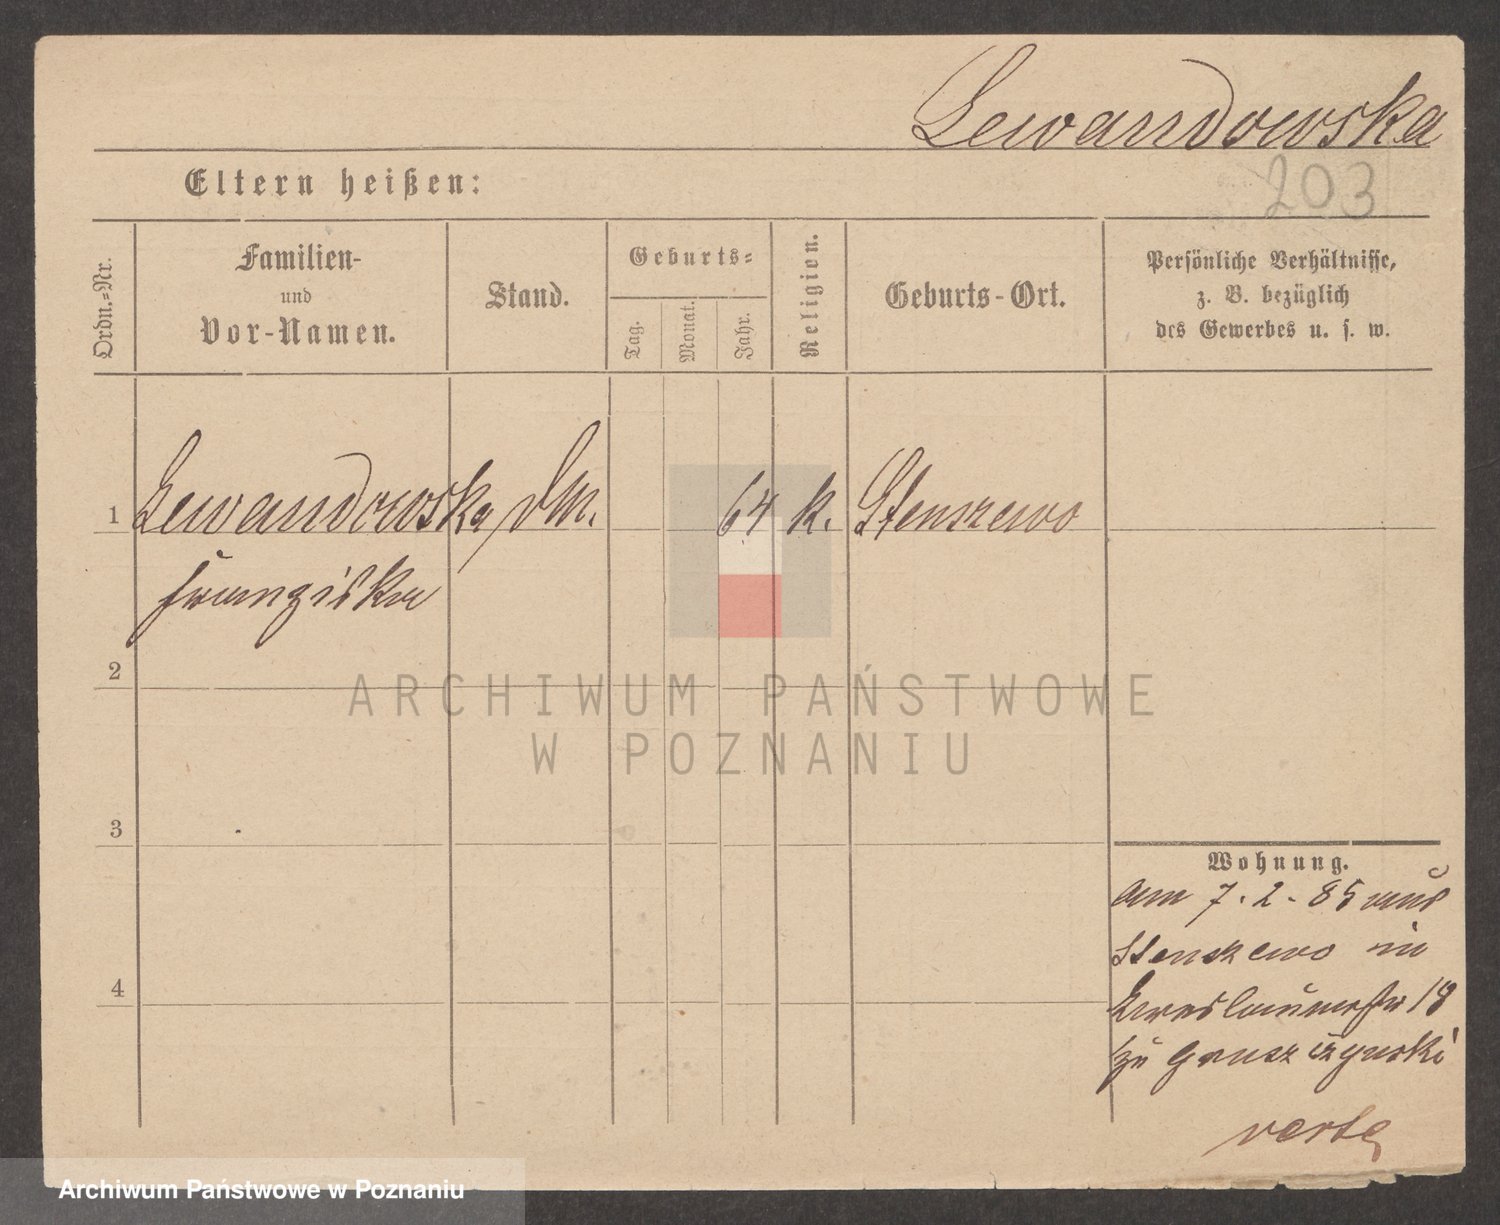 Lewandowska
203
Eltern heißen:
Ordn.-Nr.
Familien-
und
Vor-Namen.
Stand.
Geburts-
Tag.
Monat.
Jahr.
Religion.
Geburts-Ort.
Persönliche Verhältnisse,
z. B. bezüglich
des Gewerbes u. s. w.
1 Lewandowska, DM. 64 k. Stenszewo
Franziska
2
3
4
Wohnung.
am 7.2.85 aus
Stenszewo in
18
zu
verte
ARCHIWUM PAŃSTWOWE
W POZNANIU
Archiwum Państwowe w Poznaniu